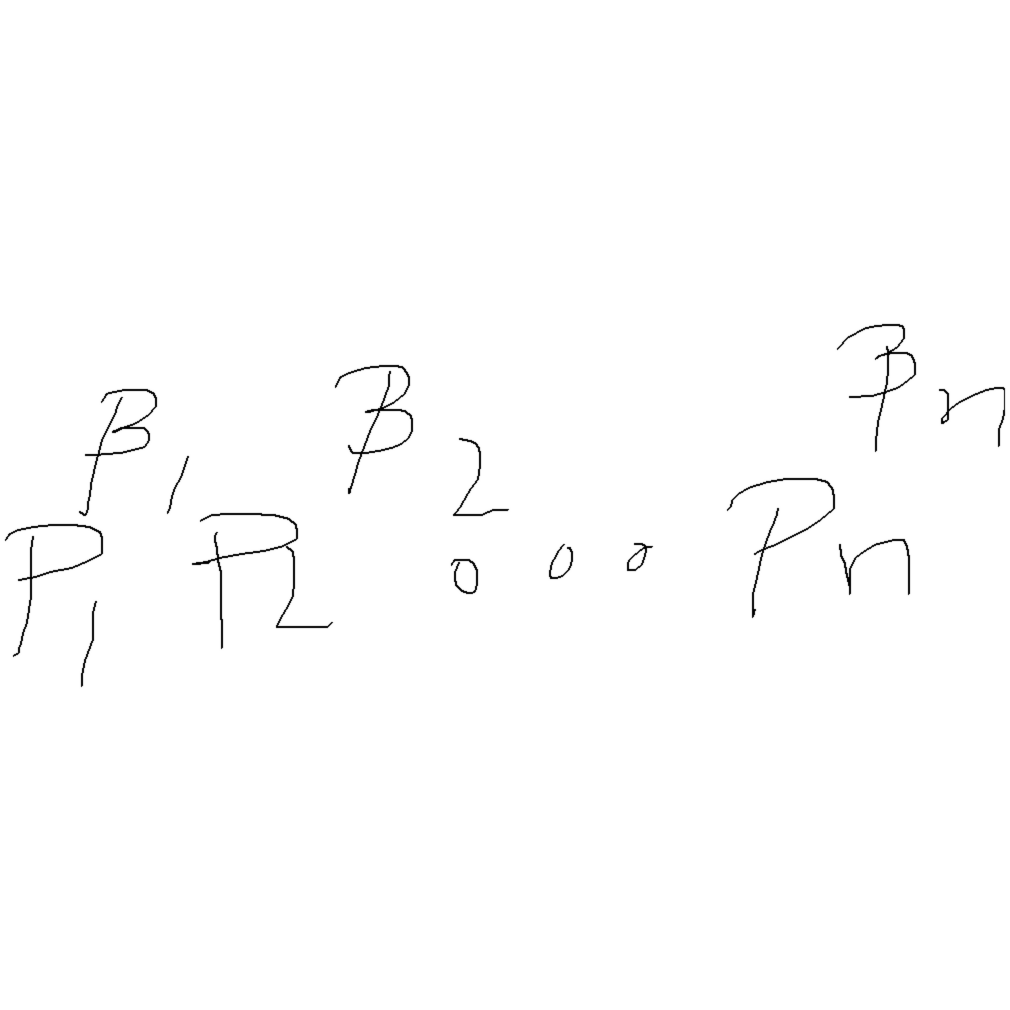 P₁^β₁ P₂^β₂ ... Pₙ^βₙ